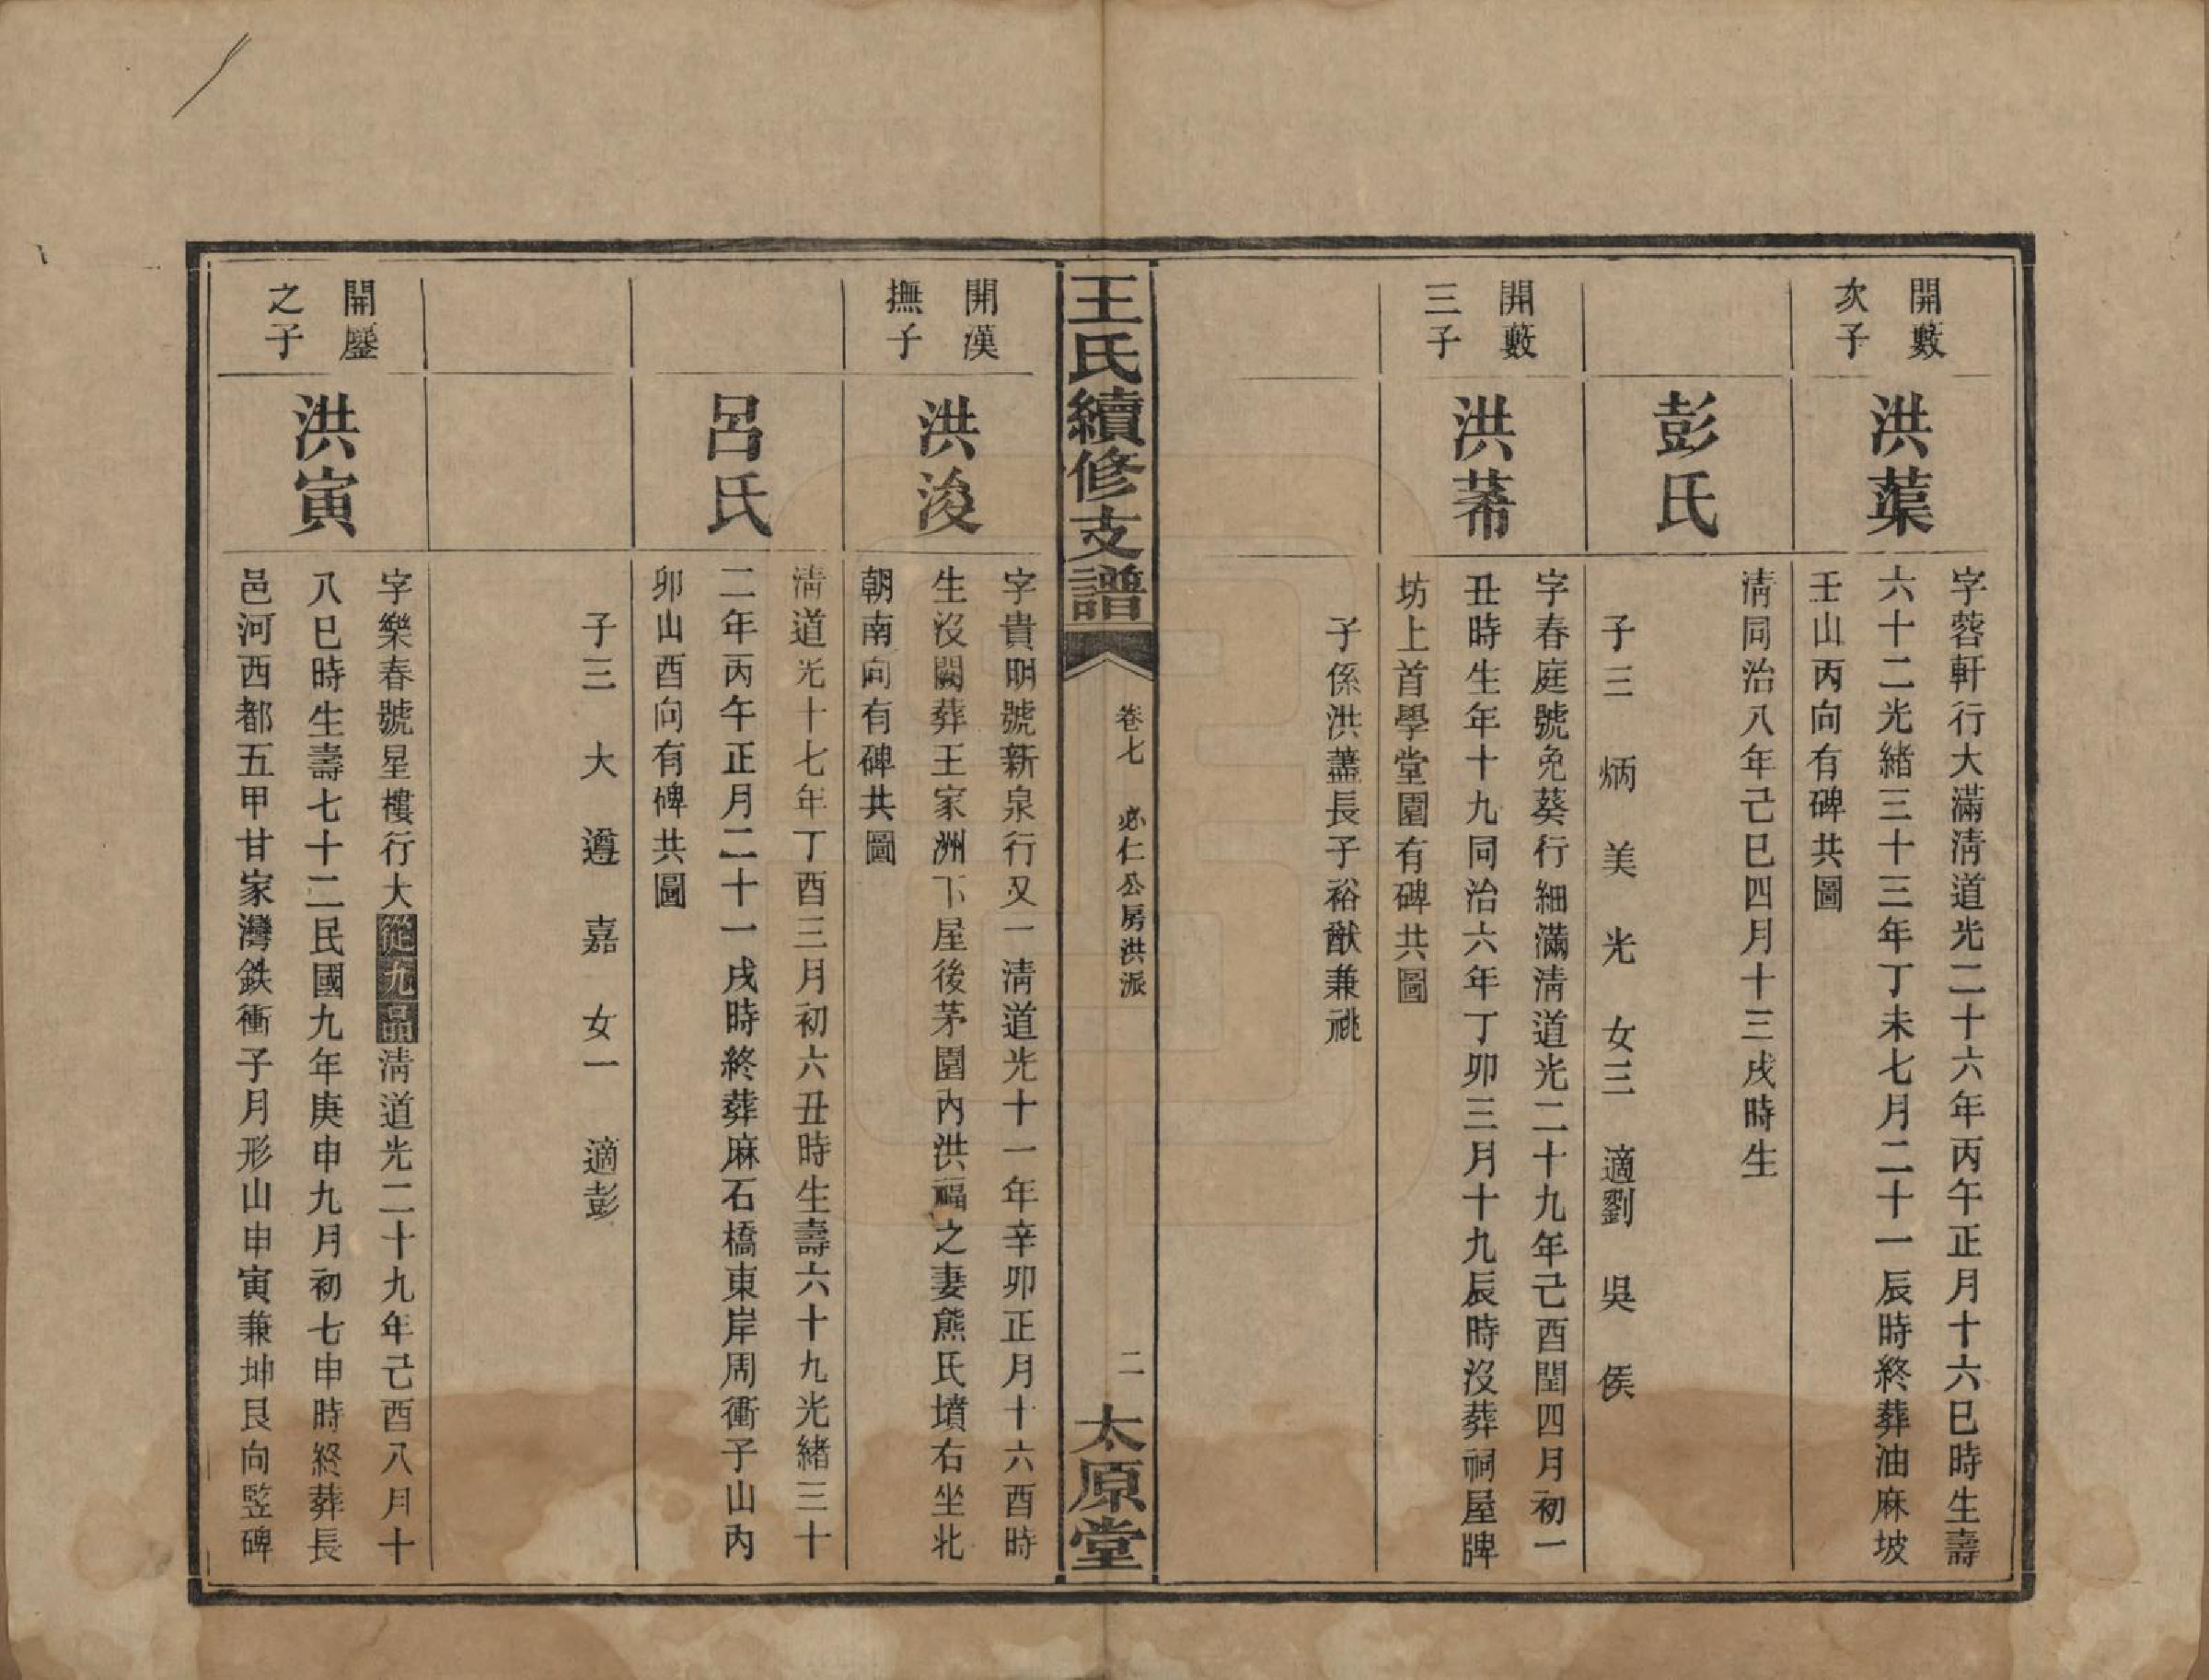 開藪
次子
洪葉
字蓉軒行大滿淸道光二十六年丙午正月十六巳時生壽
六十二光緖三十三年丁未七月二十一辰時終葬油麻坡
壬山丙向有碑共圖
彭氏
淸同治八年己巳四月十三戌時生
子三 炳 美 光 女三 適劉 吳 侯
開藪
三子
洪芾
字春庭號免葵行細滿淸道光二十九年己酉閏四月初一
丑時生年十九同治六年丁卯三月十九辰時沒葬祠屋牌
坊上首學堂園有碑共圖
子係洪藎長子裕猷兼祧
王氏續修支譜
卷七 必仁公房洪派
二
太原堂
開漢
撫子
洪浚
字貴明號新泉行又一淸道光十一年辛卯正月十六酉時
生沒闕葬王家洲下屋後茅園內洪福之妻熊氏墳右坐北
朝南向有碑共圖
呂氏
淸道光十七年丁酉三月初六丑時生壽六十九光緖三十
二年丙午正月二十一戌時終葬麻石橋東岸周衝子山內
卯山酉向有碑共圖
子三 大 遵 嘉 女一 適彭
開鏖
之子
洪寅
字樂春號星樓行大從九品淸道光二十九年己酉八月十
八巳時生壽七十二民國九年庚申九月初七申時終葬長
邑河西都五甲甘家灣鉄衝子月形山申寅兼坤艮向竪碑